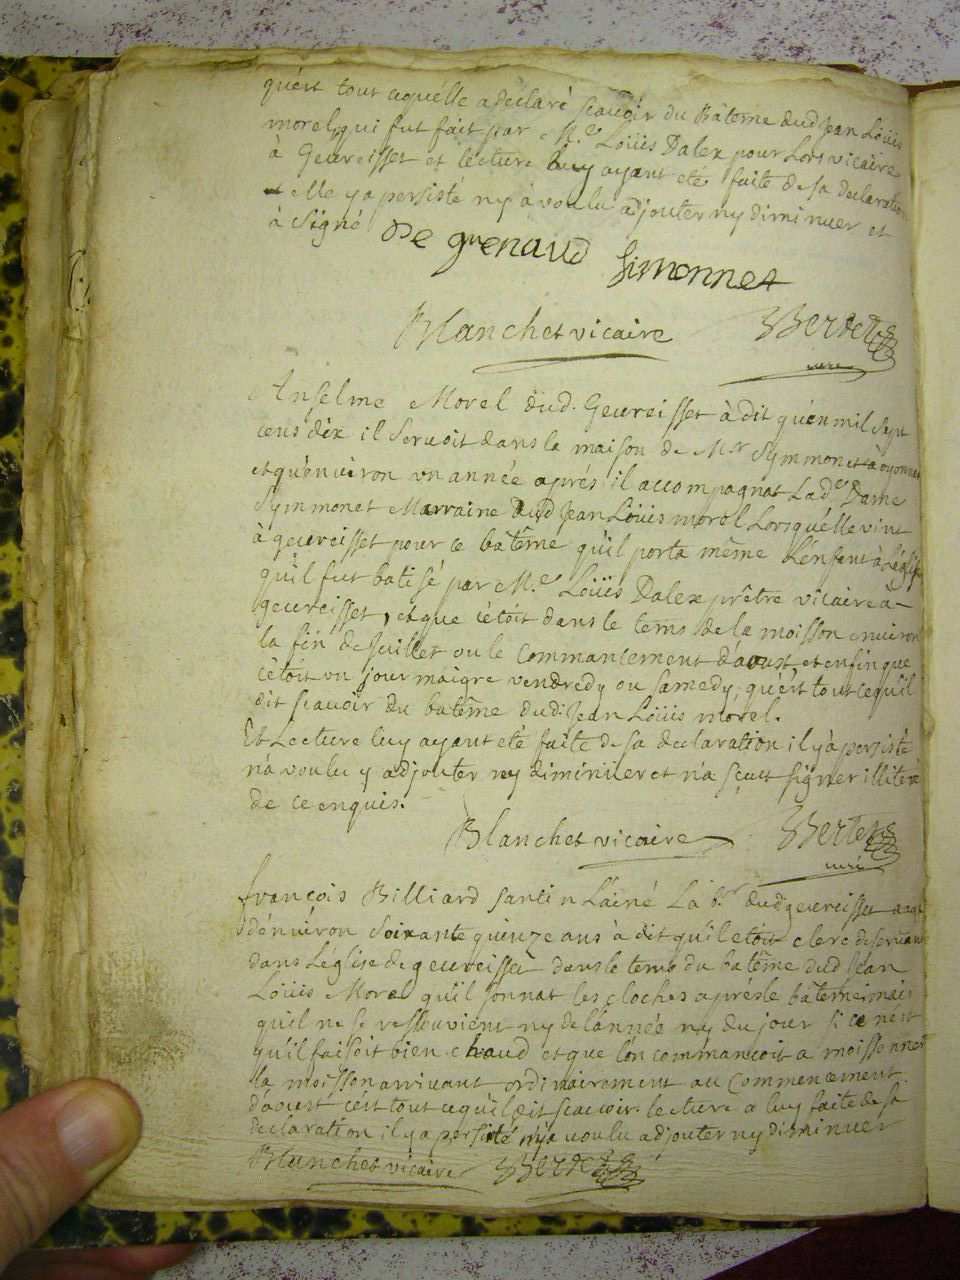 qu'est tout cequ'elle a declaré scauoir du Bâteme dud. Jean Loüis
morel, qui fut fait par M.e Loüis Dalex pour Lors vicaire
à Geureisset et lecture luy ayant eté faite de sa declaration
elle y a persisté n'y à voulu adjouter ny diminuer et
à signé
De grenaud Simonnet
Blanchet vicaire Berdet
curé
Anselme Morel dud. Geureisset à dit qu'en mil sept
cens dix il seruoit dans la maison de Mr Symmonet à oyonnax
et qu'enuiron vn année aprés il accompagnat Lad.e Dame
Symmonet Marraine dud Jean Loüis morel Lorsqu'elle vint
à geureisset pour ce batême qu'il porta même L'enfent à L'église
qu'il fut batisé par M.e Loüis Dalex prêtre vicaire à
geureisset, et que c'étoit dans le tems de la moisson enuiron
la fin de Juillet ou le Commancement d'aoust, et enfin que
c'étoit vn jour maigre vendredy ou samedy, qu'est tout cequ'il
dit scauoir du batême dud. Jean Loüis morel.
Et Lecture luy ayant eté faite de sa declaration il y à persisté
n'à voulu y adjouter ny diminüer et n'a sçeut signer illiteré
de ce enquis.
Blanchet vicaire Berdet
curé
françois Billiard Lainé Lab.r dud geureisset aagé
d'enuiron soixante quinze ans à dit qu'il etoit clerc deseruant
dans Leglise de geureisset dans le tems du batême dud Jean
Loüis Morel qu'il sonnat les cloches aprés le bâteme mais
qu'il ne se ressouuient ny de l'année ny du jour si ce n'est
qu'il faisoit bien chaud et que l'on commançoit a moissonner
la moisson arriuant ordinairement au Commencement
d'aoust c'est tout cequ'il dit scauoir. lecture a luy faite de sa
declaration il y a persisté n'y a voulu adjouter ny diminuer
Blanchet vicaire Berdet